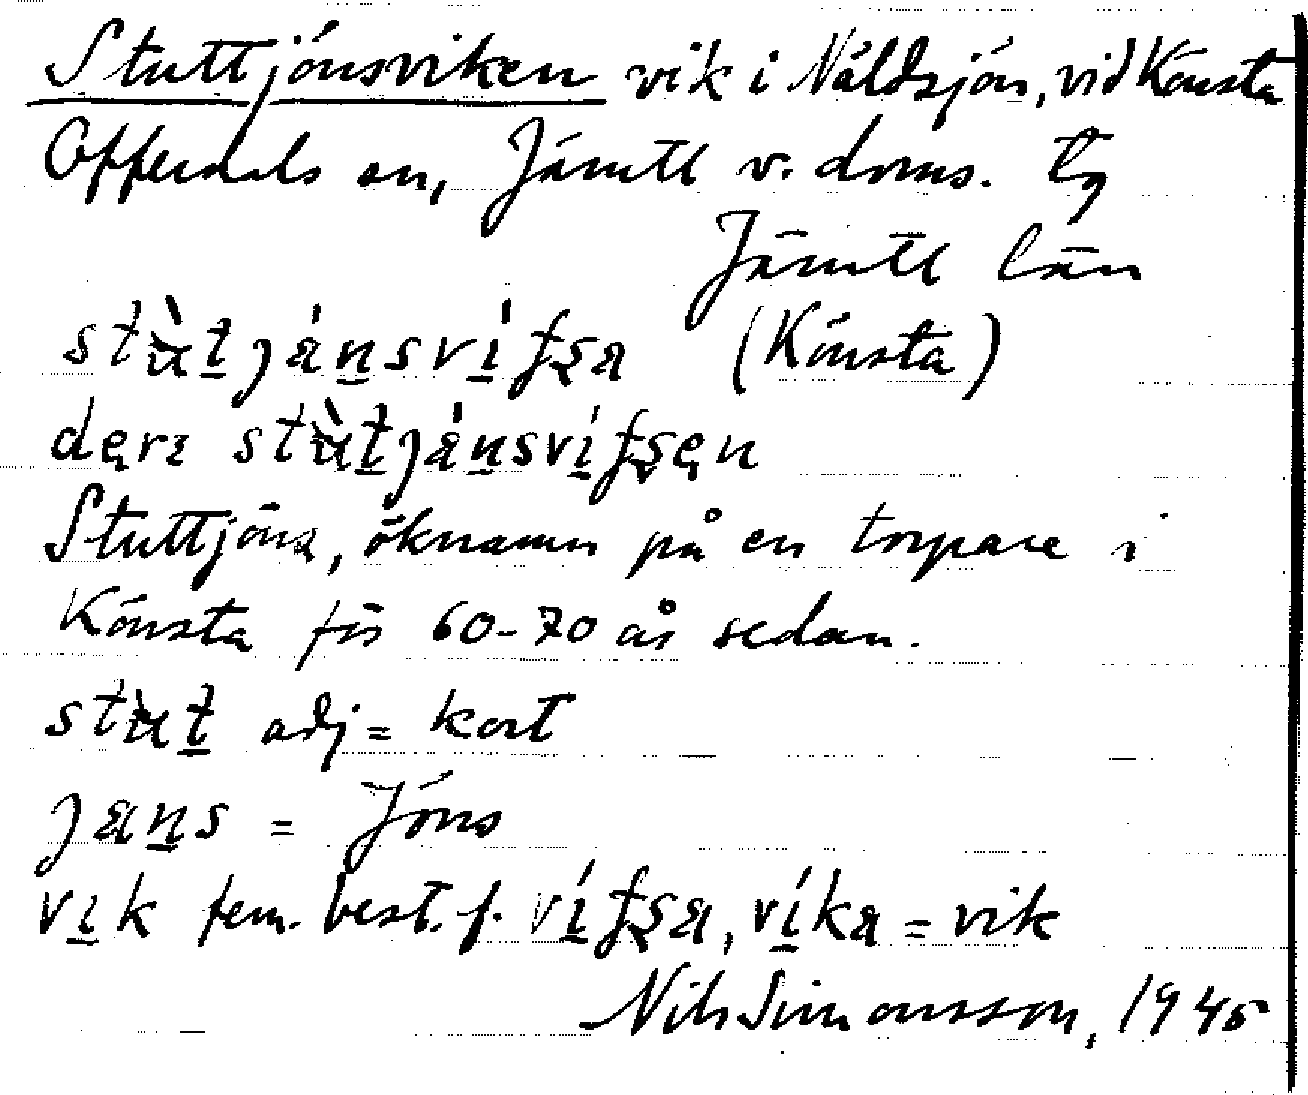 Stuttjönsviken vik i Näldsjön, vid Könsta
Offerdals sn, Jämtl v. doms. tg
Jämtl län
stùt̲jánsvi̲ fsa (Könsta)
dɛrɩ stùt̲jánsvi̲fsɛn
Stuttjöns, öknamn på en torpare i
Könsta för 60-70 år sedan.
stut̲ adj = kort
jan̲s = Jöns
vi̲k fem. best. f. ví̲fsa, ví̲ka = vik
Nils Simonsson, 1945